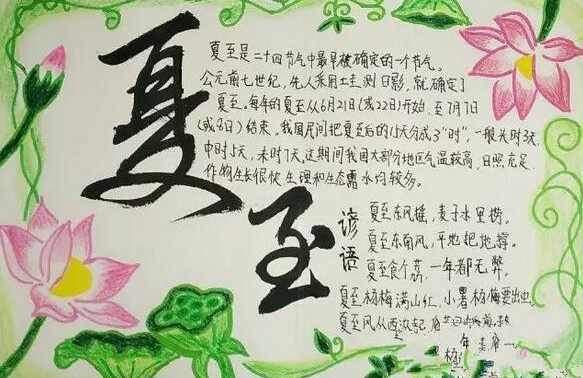 夏至
夏至是二十四节气中最早被确定的一个节气。
公元前七世纪，先人采用土圭测日影，就确定了
夏至。每年的夏至从6月21日(或22日)开始，至7月7日
(或8日)结束。我国民间把夏至后的15天分成3"时"，一般头时3天，
中时5天，末时7天。这期间我国大部分地区气温较高，日照充足，
作物生长很快，生理和生态需水均较多。
谚语
夏至东风摇，麦子水里捞。
夏至东南风，平地把船撑。
夏至食个荔，一年都无弊。
夏至杨梅满山红，小暑杨梅要出虫。
夏至风从西边起，